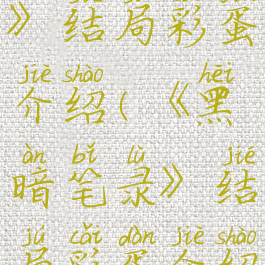 》结局彩蛋
jiè shào hēi
介绍(《黑
àn bǐ lù jié
暗笔录》结
jú cǎi dàn jiè shào
局彩蛋介绍